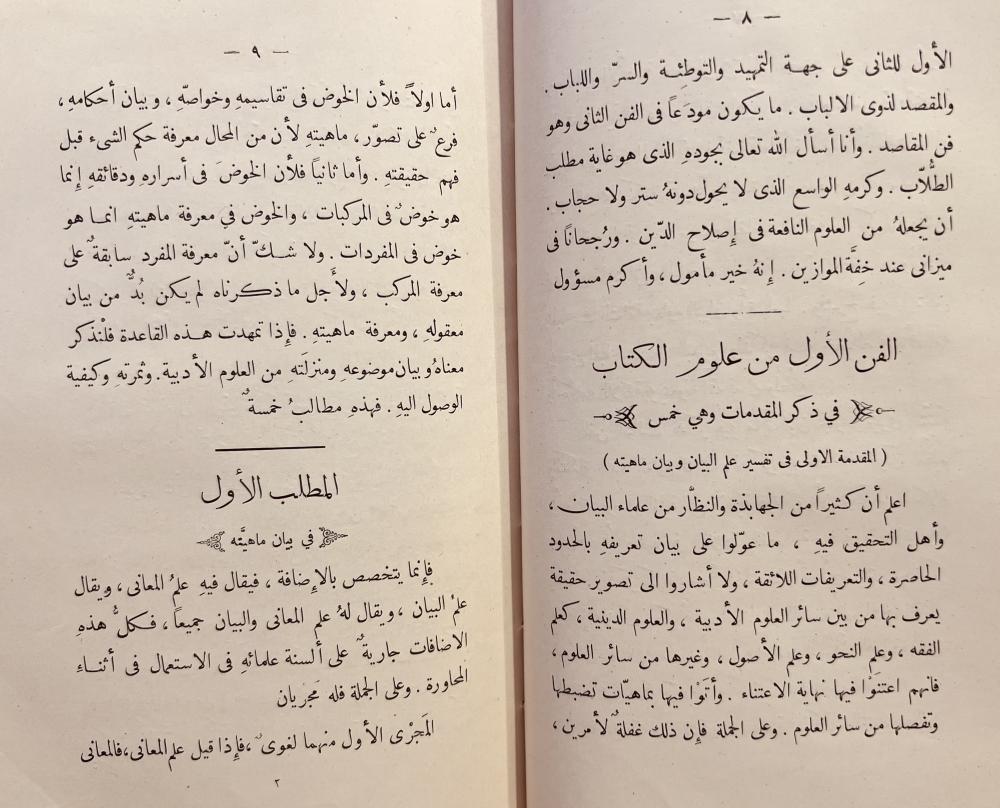 — ٨ —
الأول للثانى على جهة التمهيد والتوطئة والسرّ واللباب .
والمقصد لذوى الالباب . ما يكون مودَعاً فى الفن الثانى وهو
فن المقاصد . وأنا أسأل الله تعالى بجوده الذى هو غاية مطلب
الطُّلاّب . وكرمهِ الواسع الذى لا يحول دونهُ ستر ولا حجاب .
أن يجعلهُ من العلوم النافعة فى إصلاح الدّين . ورُجحاناً فى
ميزانى عند خِفَّة الموازين . إنهُ خير مأمول ، وأكرم مسؤول
الفن الأول من علوم الكتاب
في ذكر المقدمات وهي خمس
( المقدمة الاولى فى تفسير علم البيان وبيان ماهيته )
اعلم أن كثيراً من الجهابذة والنظّار من علماء البيان ،
وأهل التحقيق فيهِ ، ما عوّلوا على بيان تعريفهِ بالحدود
الحاصرة ، والتعريفات اللائقة ، ولا أشاروا الى تصوير حقيقة
يعرف بها من بين سائر العلوم الأدبية ، والعلوم الدينية ، كعلم
الفقه ، وعلم النحو ، وعلم الأصول ، وغيرها من سائر العلوم ،
فانهم اعتنَوْا فيها نهاية الاعتناء . وأتَوْا فيها بماهيّات تضبطها
وتفصلها من سائر العلوم . وعلى الجملة فإن ذلك غفلةٌ لأمرين ،
— ٩ —
أما اولاً فلأن الخوض فى تقاسيمهِ وخواصّهِ ، وبيان أحكامهِ ،
فرعٌ على تصوّر ، ماهيتهِ لأن من المحال معرفة حكم الشىء قبل
فهم حقيقتهِ . وأما ثانياً فلأن الخوضَ فى أسرارهِ ودقائقهِ إنما
هو خوضٌ فى المركبات ، والخوض في معرفة ماهيتهِ انما هو
خوض فى المفردات . ولا شكّ أنّ معرفة المفرد سابقةٌ على
معرفة المركب ، ولأجل ما ذكرناه لم يكن بُدٌّ من بيان
معقولهِ ، ومعرفة ماهيتهِ . فإذا تمهدت هذه القاعدة فلْنذكر
معناهُ وبيان موضوعهِ ومنزلَتهِ من العلوم الأدبية . وثمرتهِ وكيفية
الوصول اليهِ . فهذهِ مطالبُ خمسةٌ
المطلب الأول
في بيان ماهيَّته
فإنما يتخصص بالإضافة ، فيقال فيهِ علمُ المعانى ، ويقال
علمُ البيان ، ويقال لهُ علم المعانى والبيان جميعاً ، فكلُّ هذهِ
الاضافات جاريةٌ على ألسنة علمائهِ فى الاستعمال فى أثناء
المحاورة . وعلى الجملة فله مَجرَيان
المَجرْى الأول منهما لغوىٌّ ، فإذا قيل علم المعانى ، فالمعانى
٢